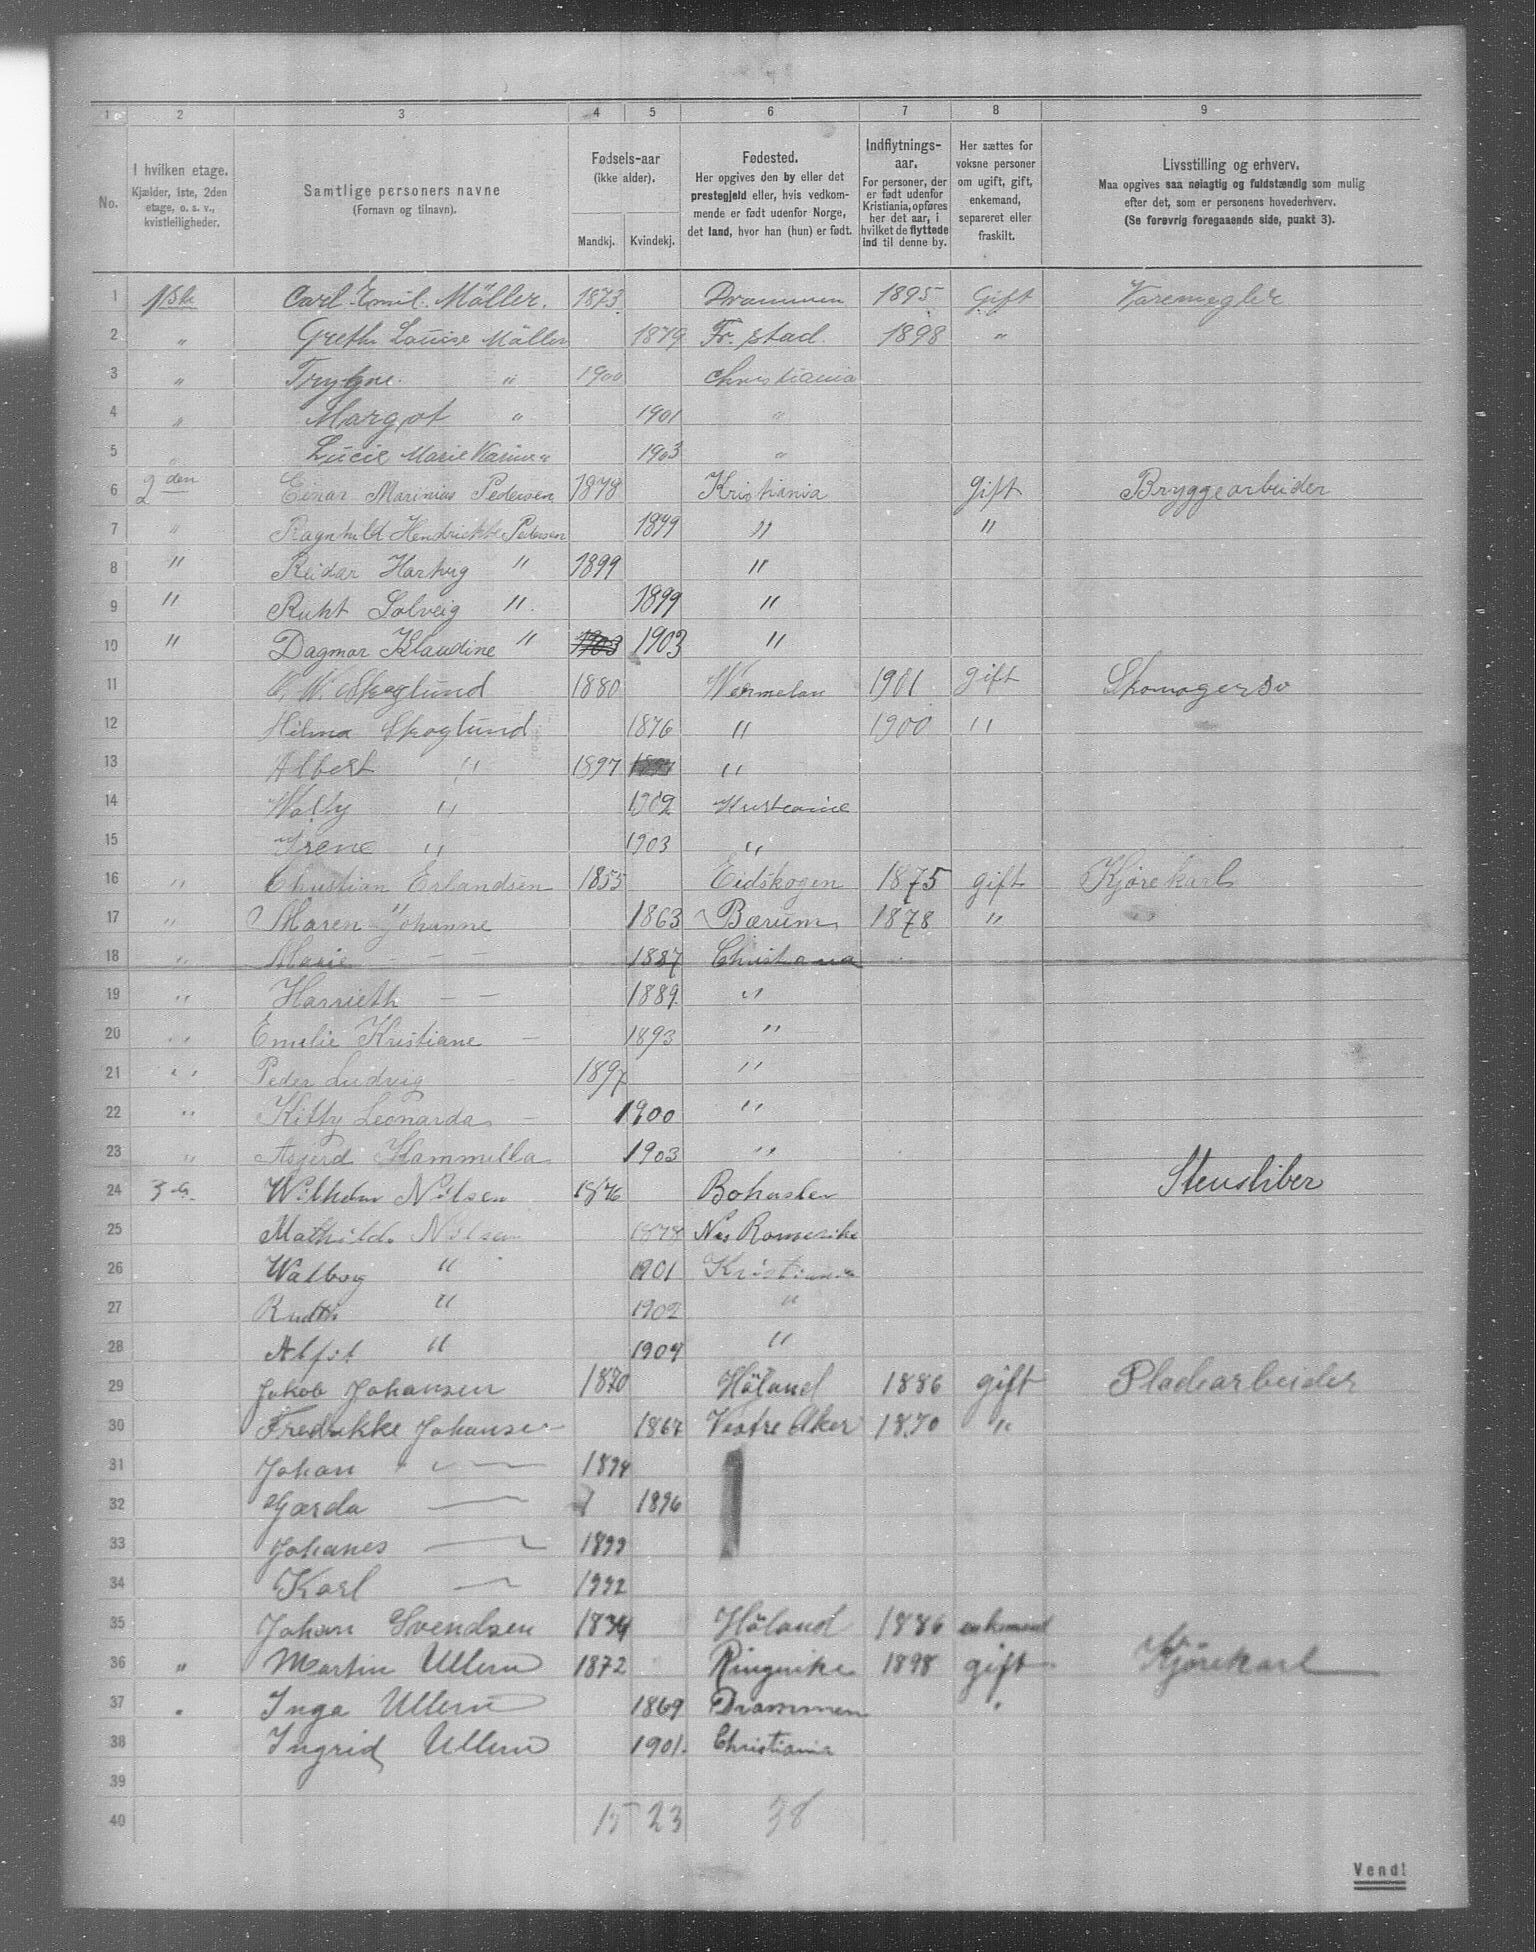 1 2 3 4 5 6 7 8 9
No. I hvilken etage. Kjælder, 1ste, 2den etage, o. s. v., kvistleiligheder. Samtlige personers navne (Fornavn og tilnavn). Fødsels-aar (ikke alder). Mandkj. Kvindekj. Fødested. Her opgives den by eller det prestegjeld eller, hvis vedkommende er født udenfor Norge, det land, hvor han (hun) er født. Indflytnings-aar. For personer, der er født udenfor Kristiania, opføres her det aar, i hvilket de flyttede ind til denne by. Her sættes for voksne personer om ugift, gift, enkemand, separeret eller fraskilt. Livsstilling og erhverv. Maa opgives saa nøiagtig og fuldstændig som mulig efter det, som er personens hovederhverv. (Se forøvrig foregaaende side, punkt 3).
1 1ste Carl Emil Møller. 1873 Drammen 1895 Gift Varemegler
2 " Grethe Louise Møller 1879 Fr. stad. 1898 "
3 " Trygve " 1900 Christiania
4 " Margot " 1901 "
5 " Lucie Marie Karine " 1903 "
6 2den Einar Marinius Pedersen 1878 Kristiania Gift Bryggearbeider
7 " Ragnhild Hendrikke Pedersen 1879 " "
8 " Reidar Hartvig " 1899 "
9 " Ruht Solveig " 1899 "
10 " Dagmar Klaudine " 1903 1903 "
11 Skoglund 1880 Wermelan 1901 gift Skomagersv
12 Hilma Skoglund 1876 " 1900 "
13 Albert " 1897 "
14 Wally " 1902 Kristianie
15 Irene " 1903 "
16 " Christian Erlandsen 1855 Eidskogen 1875 gift Kjørekarl
17 " Maren Johanne " 1863 Bærum 1878 "
18 " Marie - - - 1887 Christiania
19 " Harrieth - - 1889 "
20 " Emelie Kristiane - 1893 "
21 " Peder Ludvig - 1897 "
22 " Kitty Leonarda - 1900 "
23 " Asgerd Kammilla 1903 "
24 3 Wilhelm Nilsen 1876 Bohuslen Stensliber
25 Mathilde Nilsen 1878 Nes Romerike
26 Walbog " 1901 Kristiania
27 Ruth " 1902 "
28 " 1904 "
29 Jakob Johansen 1870 Höland 1886 gift Pladearbeider
30 Fredrikke Johansen 1867 Vestre Aker 1870 "
31 Johan 1894
32 Gærda 1896
33 Johanes 1899
34 Karl
35 Johan Svendsen 1834 Höland 1886 enkemand
36 " Martin Ullern 1872 Ringerike 1898 gift Kjørekarl
37 " Inga Ullern 1869 Drammen "
38 Ingrid Ullern 1901. Christiania
39
40 15 23 38
Vend!